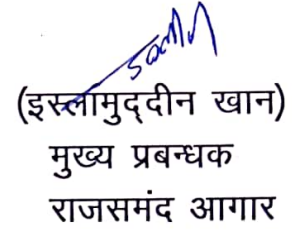 (इस्लामुद्दीन खान)
मुख्य प्रबन्धक
राजसमंद आगार